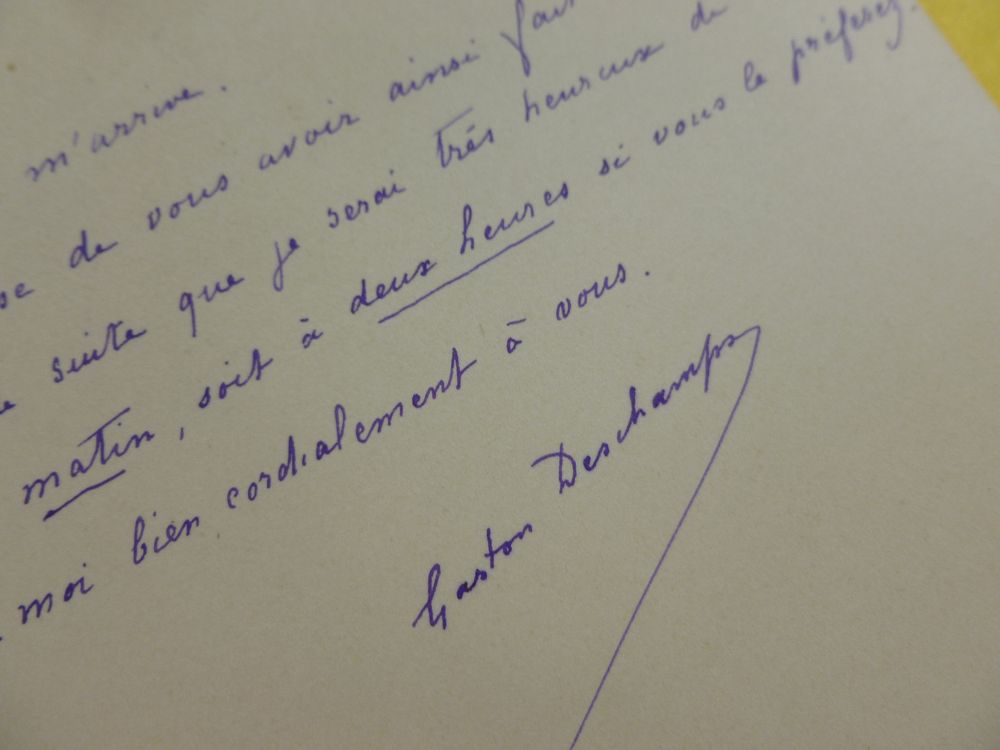 m'arrive.
de vous avoir ainsi
suite que je serai très heureux de
matin, soit à deux heures si vous le préférez.
moi bien cordialement à vous.
Gaston Deschamps